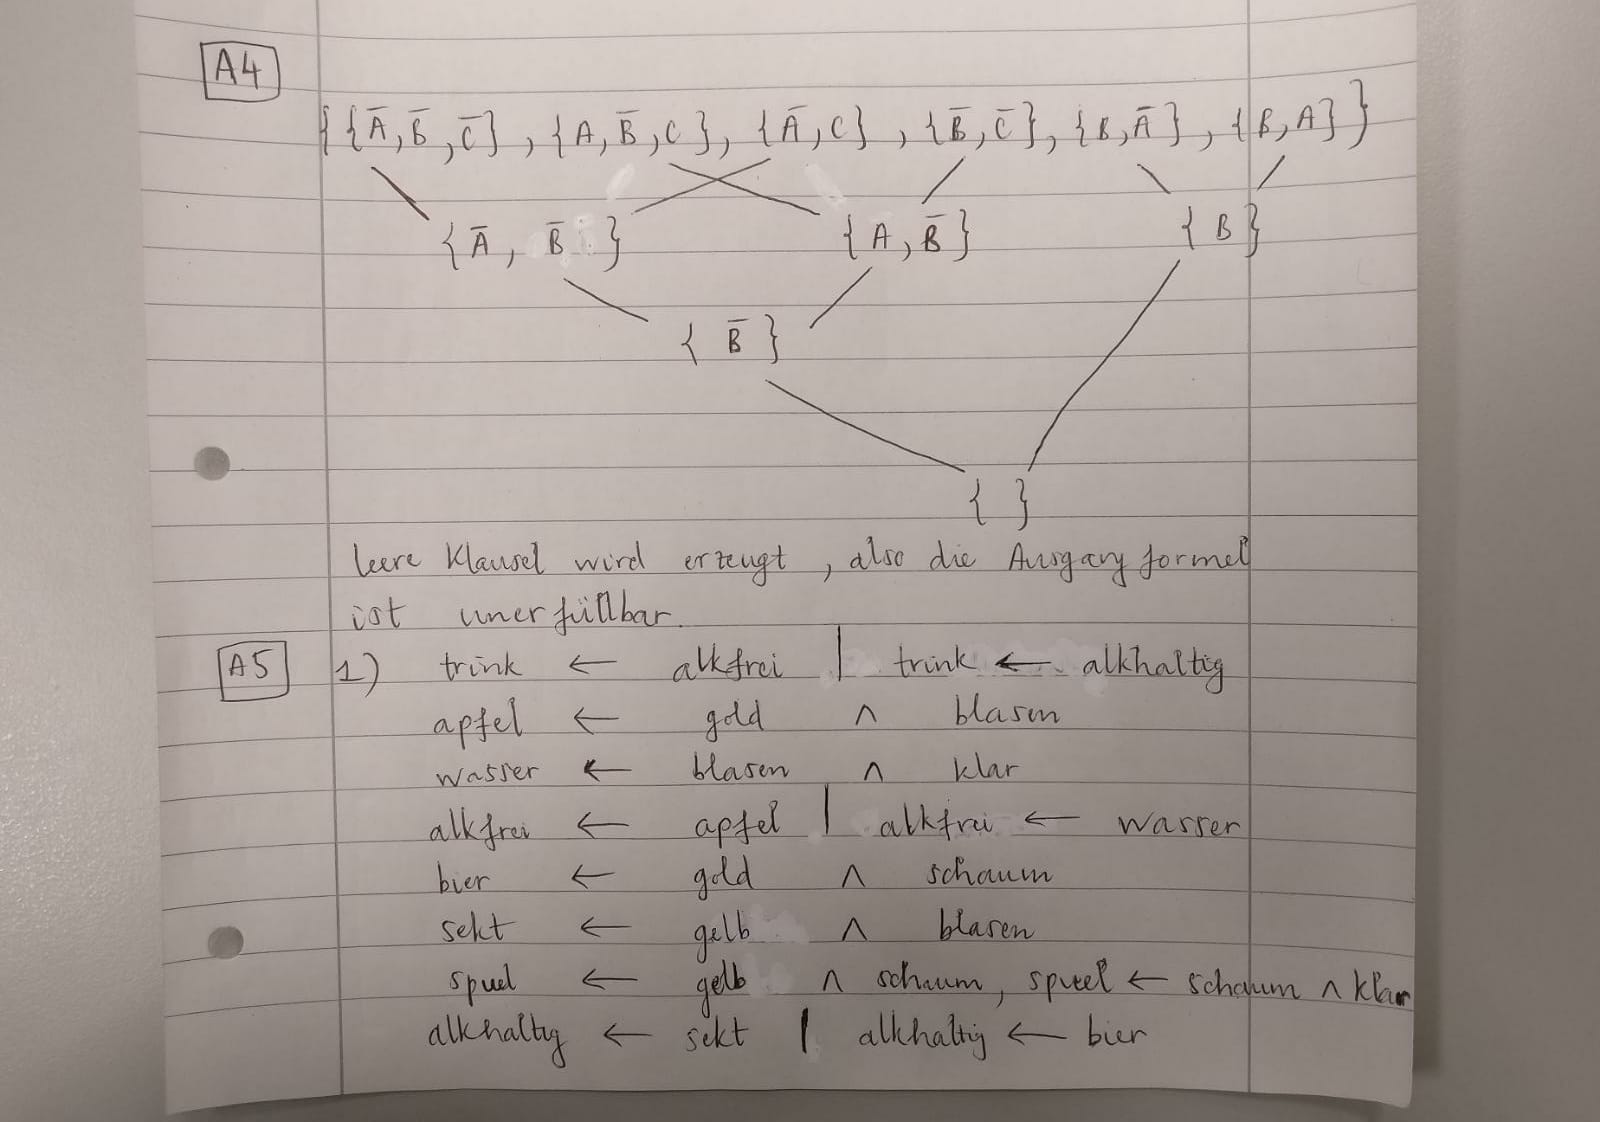 A4
{{Ā, B̄, C̄}, {A, B̄, C}, {Ā, C}, {B̄, C̄}, {B, Ā}, {B, A}}
{Ā, B̄} {A, B̄} {B}
{B̄}
{ }
leere Klausel wird erzeugt, also die Ausgangformel
ist unerfüllbar.
A5 1) trink ← alkfrei | trink ← alkhaltig
apfel ← gold ∧ blasen
wasser ← blasen ∧ klar
alkfrei ← apfel | alkfrei ← wasser
bier ← gold ∧ schaum
sekt ← gelb ∧ blasen
spuel ← gelb ∧ schaum, spuel ← schaum ∧ klar
alkhaltig ← sekt | alkhaltig ← bier